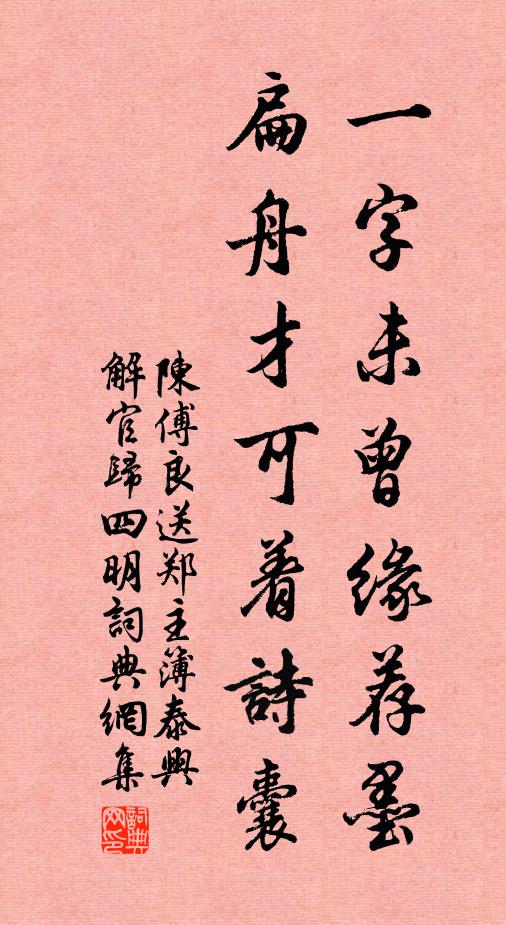 一字未曾缘荐墨
扁舟才可着詩囊
陳傅良送郑主簿泰興
解官歸四明詞典網集
詞典网印